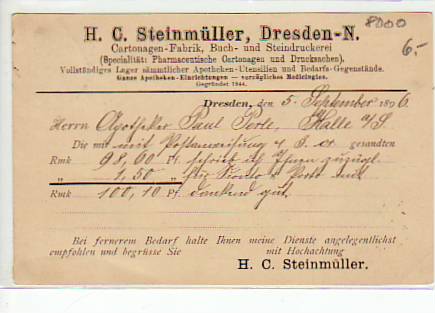 8000
6.-
H. C. Steinmüller, Dresden-N.
Cartonagen-Fabrik, Buch- und Steindruckerei
(Specialität: Pharmaceutische Cartonagen und Drucksachen).
Vollständiges Lager sämmtlicher Apotheken-Utensilien und Bedarfs-Gegenstände.
Ganze Apotheken-Einrichtungen — vorzügliches Medicinglas.
Gegründet 1844.
Dresden, den 5. September 1896
Herrn Apotheker Paul Halle a/S.
Die mir mit Postanweisung gesandten
Rmk 98,00 Pf. schrieb ich Ihnen zuzügl.
„ 1,50 „ für Porto
Rmk 100,10 Pf. dankend gut.
Bei fernerem Bedarf halte Ihnen meine Dienste angelegentlichst
empfohlen und begrüsse Sie mit Hochachtung
H. C. Steinmüller.